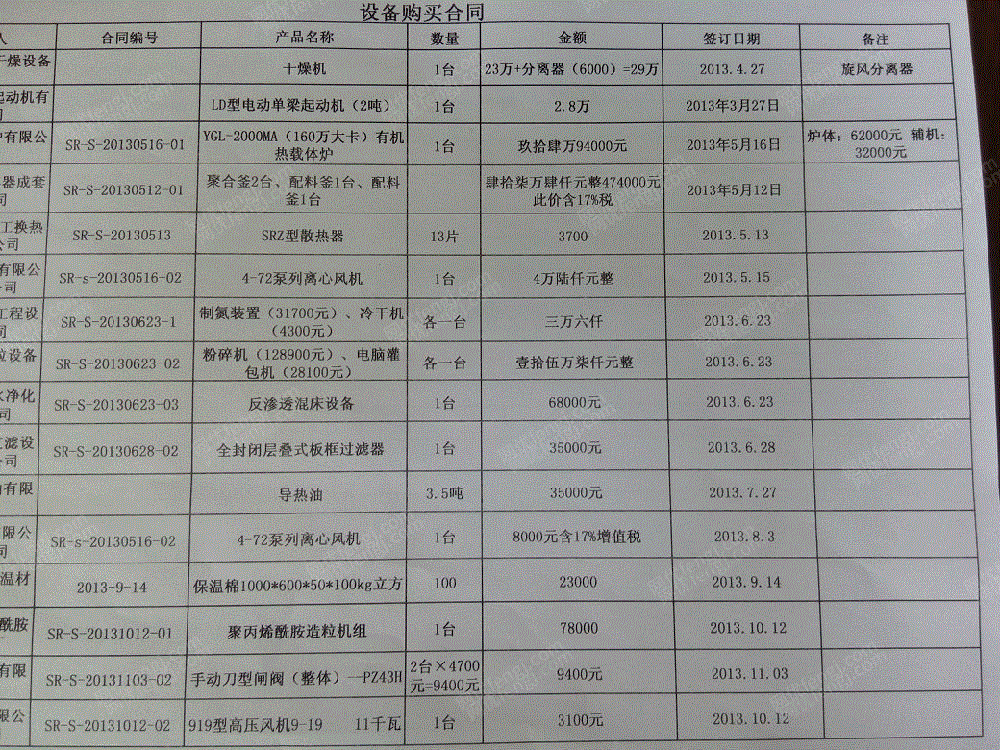 设备购买合同
人 合同编号 产品名称 数量 金额 签订日期 备注
干燥设备 干燥机 1台 23万+分离器（6000）=29万 2013.4.27 旋风分离器
起动机有
司 LD型电动单梁起动机（2吨） 1台 2.8万 2013年3月27日
炉有限公 SR-S-20130516-01 YGL-2000MA（160万大卡）有机
热载体炉 1台 玖拾肆万94000元 2013年5月16日 炉体：62000元 辅机：
32000元
器成套
司 SR-S-20130512-01 聚合釜2台、配料釜1台、配料
釜1台 肆拾柒万肆仟元整474000元
此价含17%税 2013年5月12日
工换热
公司 SR-S-20130513 SRZ型散热器 13片 3700 2013.5.13
有限公
司 SR-s-20130516-02 4-72泵列离心风机 1台 4万陆仟元整 2013.5.15
工程设
司 SR-S-20130623-1 制氮装置（31700元）、冷干机
（4300元） 各一台 三万六仟 2013.6.23
粒设备 SR-S-20130623 02 粉碎机（128900元）、电脑灌
包机（28100元） 各一台 壹拾伍万柒仟元整 2013.6.23
水净化
司 SR-S-20130623-03 反渗透混床设备 1台 68000元 2013.6.23
过滤设
公司 SR-S-20130628-02 全封闭层叠式板框过滤器 1台 35000元 2013.6.28
油有限 导热油 3.5吨 35000元 2013.7.27
有限公
司 SR-s-20130516-02 4-72泵列离心风机 1台 8000元含17%增值税 2013.8.3
温材 2013-9-14 保温棉1000*600*50*100kg立方 100 23000 2013.9.14
酰胺 SR-S-20131012-01 聚丙烯酰胺造粒机组 1台 78000 2013.10.12
有限 SR-S-20131103-02 手动刀型闸阀（整体）--PZ43H 2台×4700
元=9400元 9400元 2013.11.03
限公 SR-S-20131012-02 919型高压风机9-19 11千瓦 1台 3100元 2013.10.12